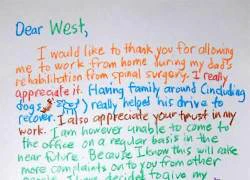 Dear West,
I would like to thank you for allowing
me to work from home during my dad's
rehabilitation from spinal surgery. I really
appreciate it. Having family around (including
dogs) really helped his drive to
recover. I also appreciate your trust in my
work. I am however unable to come to
the office on a regular basis in the
near future. Because I know this will raise
more complaints on to you from other
I have decided to give my